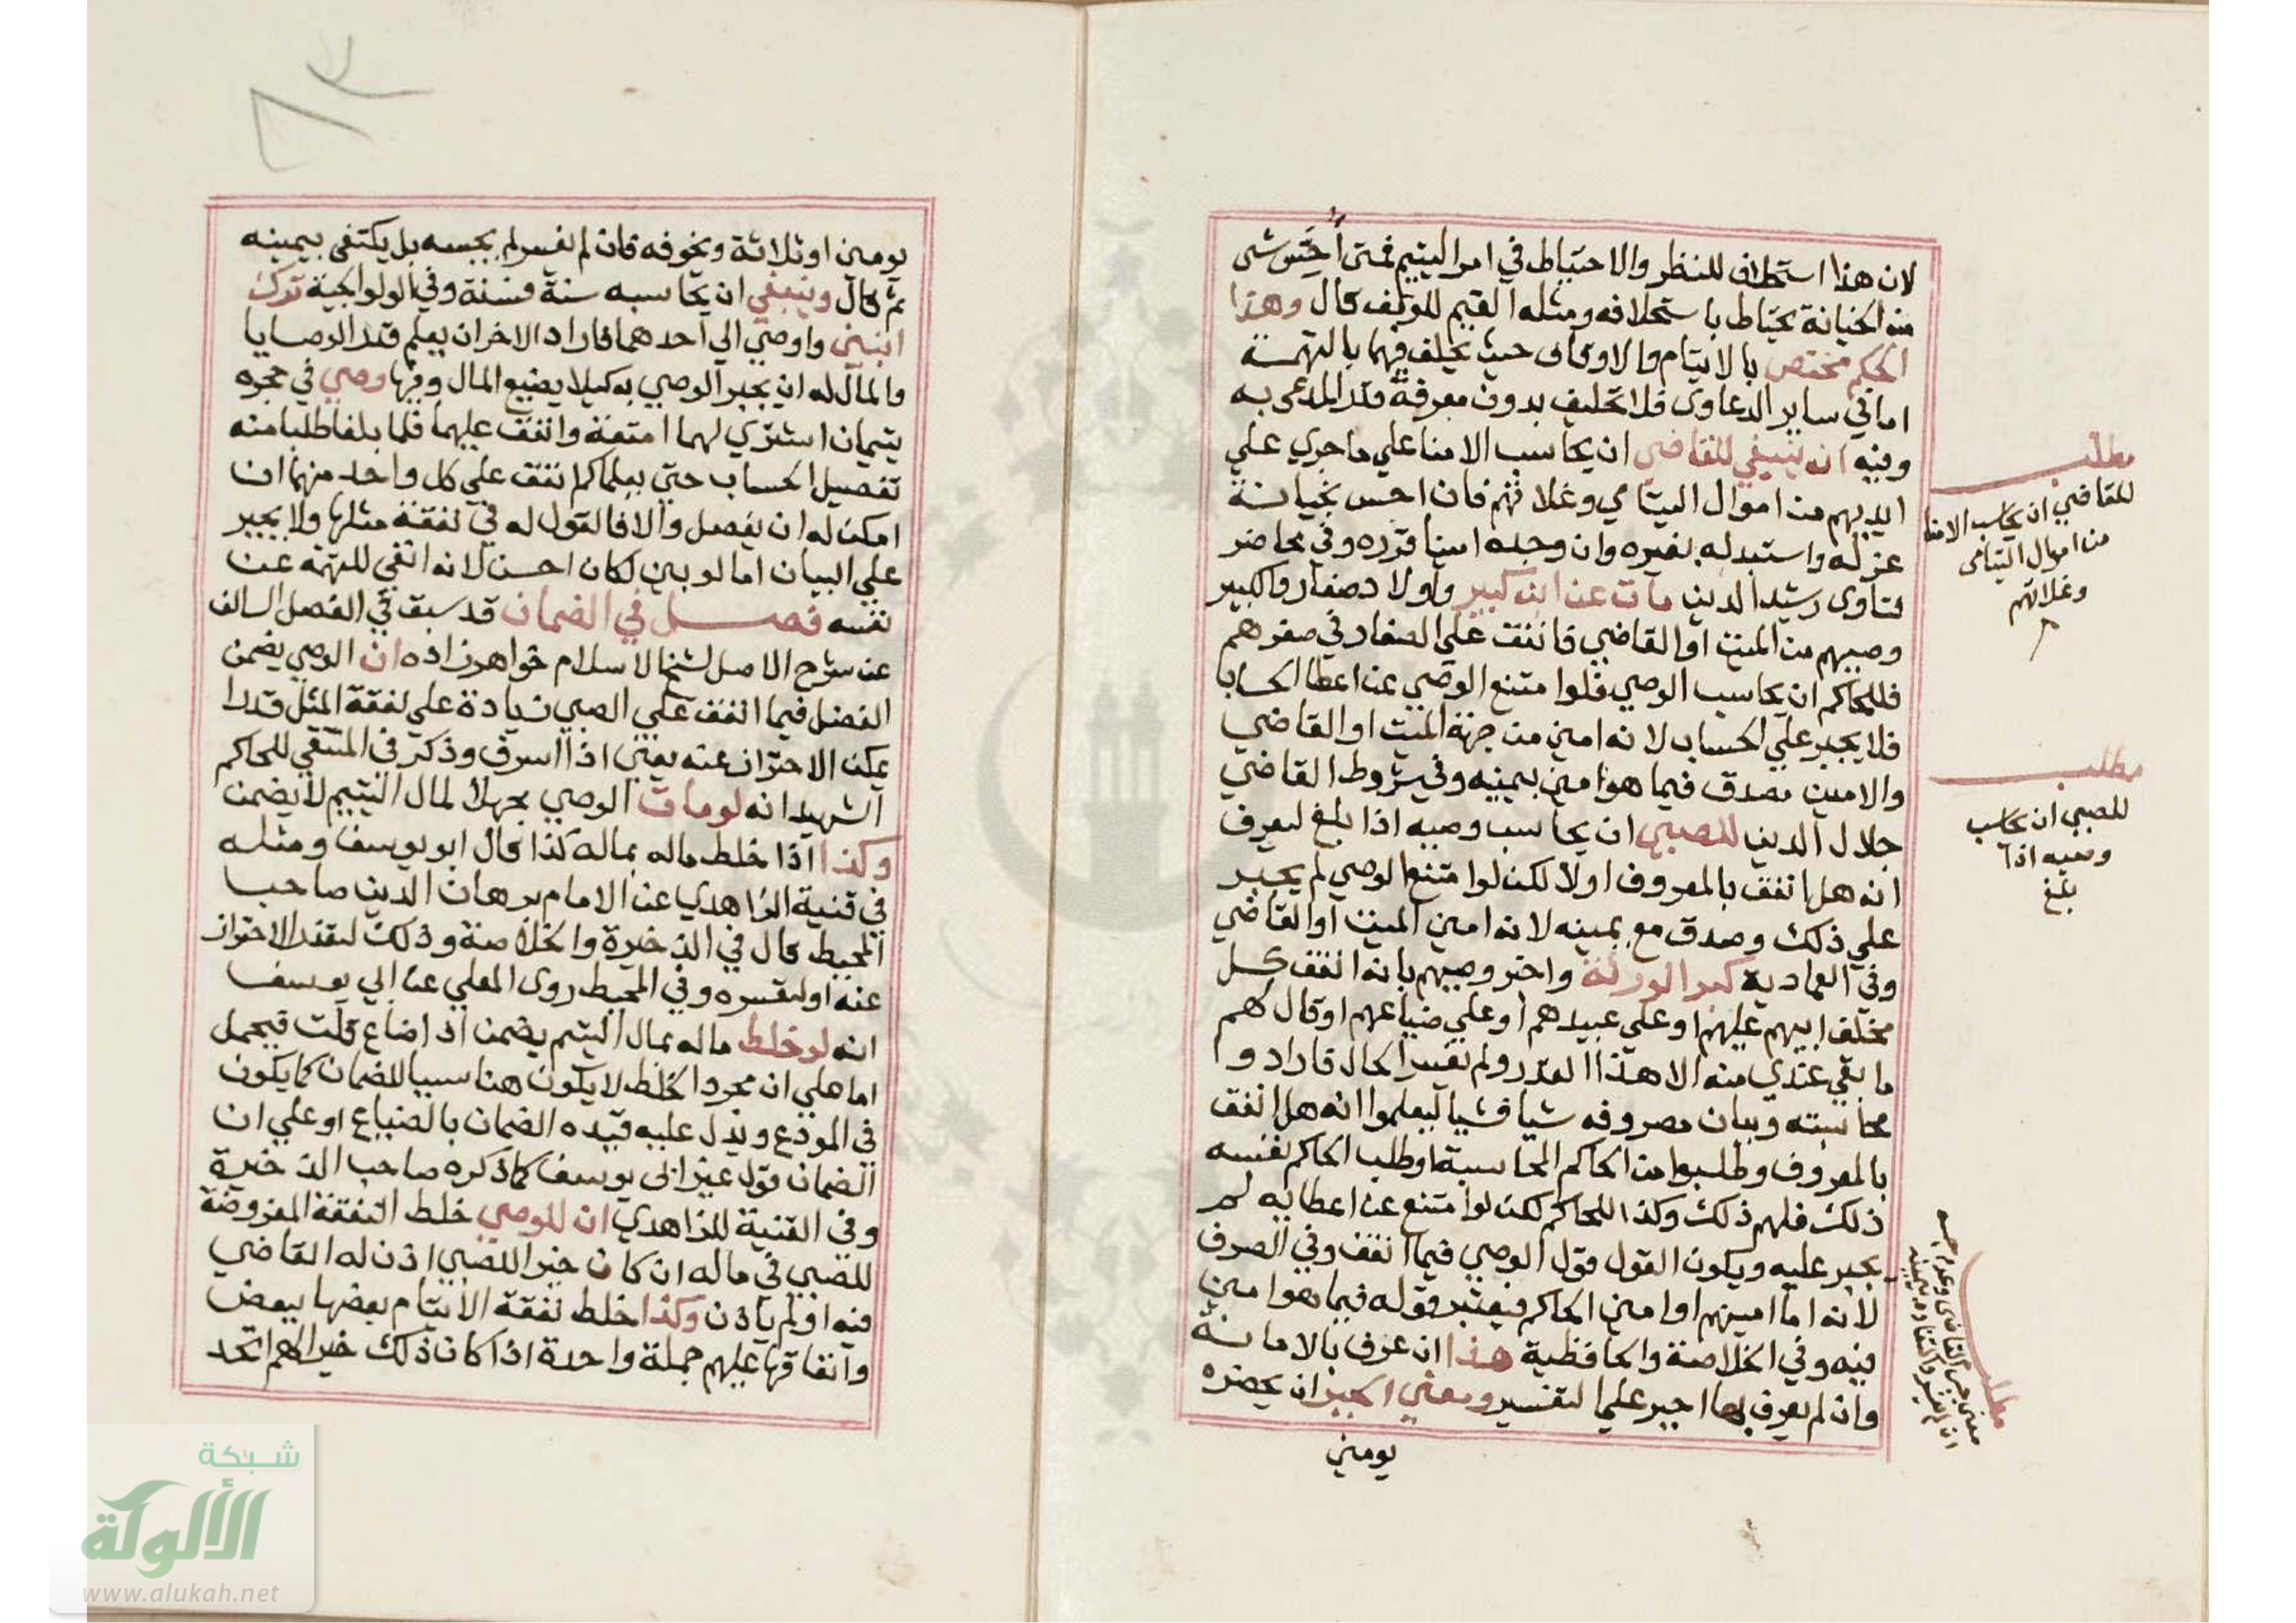 لان هذا استحلاف للنظر والاحتياط في امر اليتيم فمتى احس شي
من الخيانة يحتاط باستحلافه ومثله القيم للوقف قال وهذا
الحكم مختص بالايتام والاوقاف حيث يحلف فيهما بالتهمة
اما في ساير الدعاوى فلا تحليف بدون معرفة قدر المدعى به
وفيه انه ينبغي للقاضي ان يحاسب الامنا علي ما جري علي
ايديهم من اموال اليتامي وغلاتهم فان احس بخيانة
عزله واستبدله بغيره وان وجده امينا قرره وفي محاضر
فتاوى رشيد الدين مات عن ابن كبير واولاد صغار والكبير
وصيهم من الميت او القاضي فانفق علي الصغار في صغرهم
فللحاكم ان يحاسب الوصي فلو امتنع الوصي عن اعطا الحساب
فلا يجبر علي الحساب لانه امين من جهة الميت او القاضي
والامين مصدق فيما هو امين بيمينه وفي شروط القاضي
جلال الدين للصبي ان يحاسب وصيه اذا بلغ ليعرف
انه هل انفق بالمعروف اولا لكن لو امتنع الوصي لم يجبر
علي ذلك وصدق مع يمينه لانه امين الميت او القاضي
وفي العمادية كبر الورثة واخبر وصيهم بانه انفق كل
مخلف ابيهم عليهم او علي عبيدهم او علي ضياعهم او قال لهم
ما بقي عندي منه الا هذا القدر ولم يفسر الحال فارادوا
محاسبته وبيان مصروفه شيا فشيا ليعلموا انه هل انفق
بالمعروف وطلبوا من الحاكم المحاسبة او طلب الحاكم بنفسه
ذلك فلهم ذلك وكذا للحاكم لكن لو امتنع عن اعطايه لم
يجبر عليه ويكون القول قول الوصي فيما انفق وفي الصرف
لانه اما امينهم او امين الحاكم فيعتبر قوله فيما هو امين
فيه وفي الخلاصة والحافظية هذا ان عرف بالامانة
وان لم يعرف بها اجبر علي التفسير ومعني الجبر ان يحضره
يومين
مطلب
للقاضي ان يحاسب الامنا
من اموال اليتامى
وغلاتهم
مطلب
للصبي ان يحاسب
وصيه اذا
بلغ
مطلب
يومين او ثلاثة ويخوفه فان لم يفسر لم يحبسه بل يكتفي بيمينه
ثم قال وينبغي ان يحاسبه سنة فسنة وفي الولوالجية ترك
ابنين واوصي الي احدهما فاراد الاخر ان يعلم قدر الوصايا
والمال له ان يجبر الوصي به كيلا يضيع المال وفيها وصي في حجره
يتيمان اشتري لهما امتعة وانفق عليهما فلما بلغا طلبا منه
تفصيل الحساب حتي يعلما كم انفق علي كل واحد منهما ان
امكن له ان يفصل والا فالقول له في نفقة مثلها ولا يجبر
علي البيان اما لو بين لكان احسن لانه انفي للتهمة عن
نفسه فصل في الضمان قد سبق في الفصل السالف
عن شرح الاصل لشيخ الاسلام خواهرزاده ان الوصي يضمن
الفضل فيما انفق علي الصبي زيادة علي نفقة المثل قدرا
يمكن الاحتراز عنه يعني اذا اسرف وذكر في المنتقي للحاكم
الشهيد انه لو مات الوصي مجهلا لمال اليتيم لا يضمن
وكذا اذا خلط ماله بماله كذا قال ابو يوسف ومثله
في قنية الزاهدي عن الامام برهان الدين صاحب
المحيط قال في الذخيرة والخلاصة وذلك لتعذر الاحتراز
عنه او لتعسره وفي المحيط روى المعلي عن ابي يوسف
انه لو خلط ماله بمال اليتيم يضمن اذا ضاع قلت فيحمل
اما علي ان مجرد الخلط لا يكون هنا سببا للضمان كما يكون
في المودع ويدل عليه قيده الضمان بالضياع او علي ان
الضمان قول غير ابى يوسف كما ذكره صاحب الذخيرة
وفي القنية للزاهدي ان للوصي خلط النفقة المفروضة
للصبي في ماله ان كان خيرا للصبي اذن له القاضي
فيه او لم ياذن وكذا خلط نفقة الايتام بعضها ببعض
وانفاقها عليهم جملة واحدة اذا كان ذلك خيرا لهم اتحد
شبكة
الألوكة
www.alukah.net